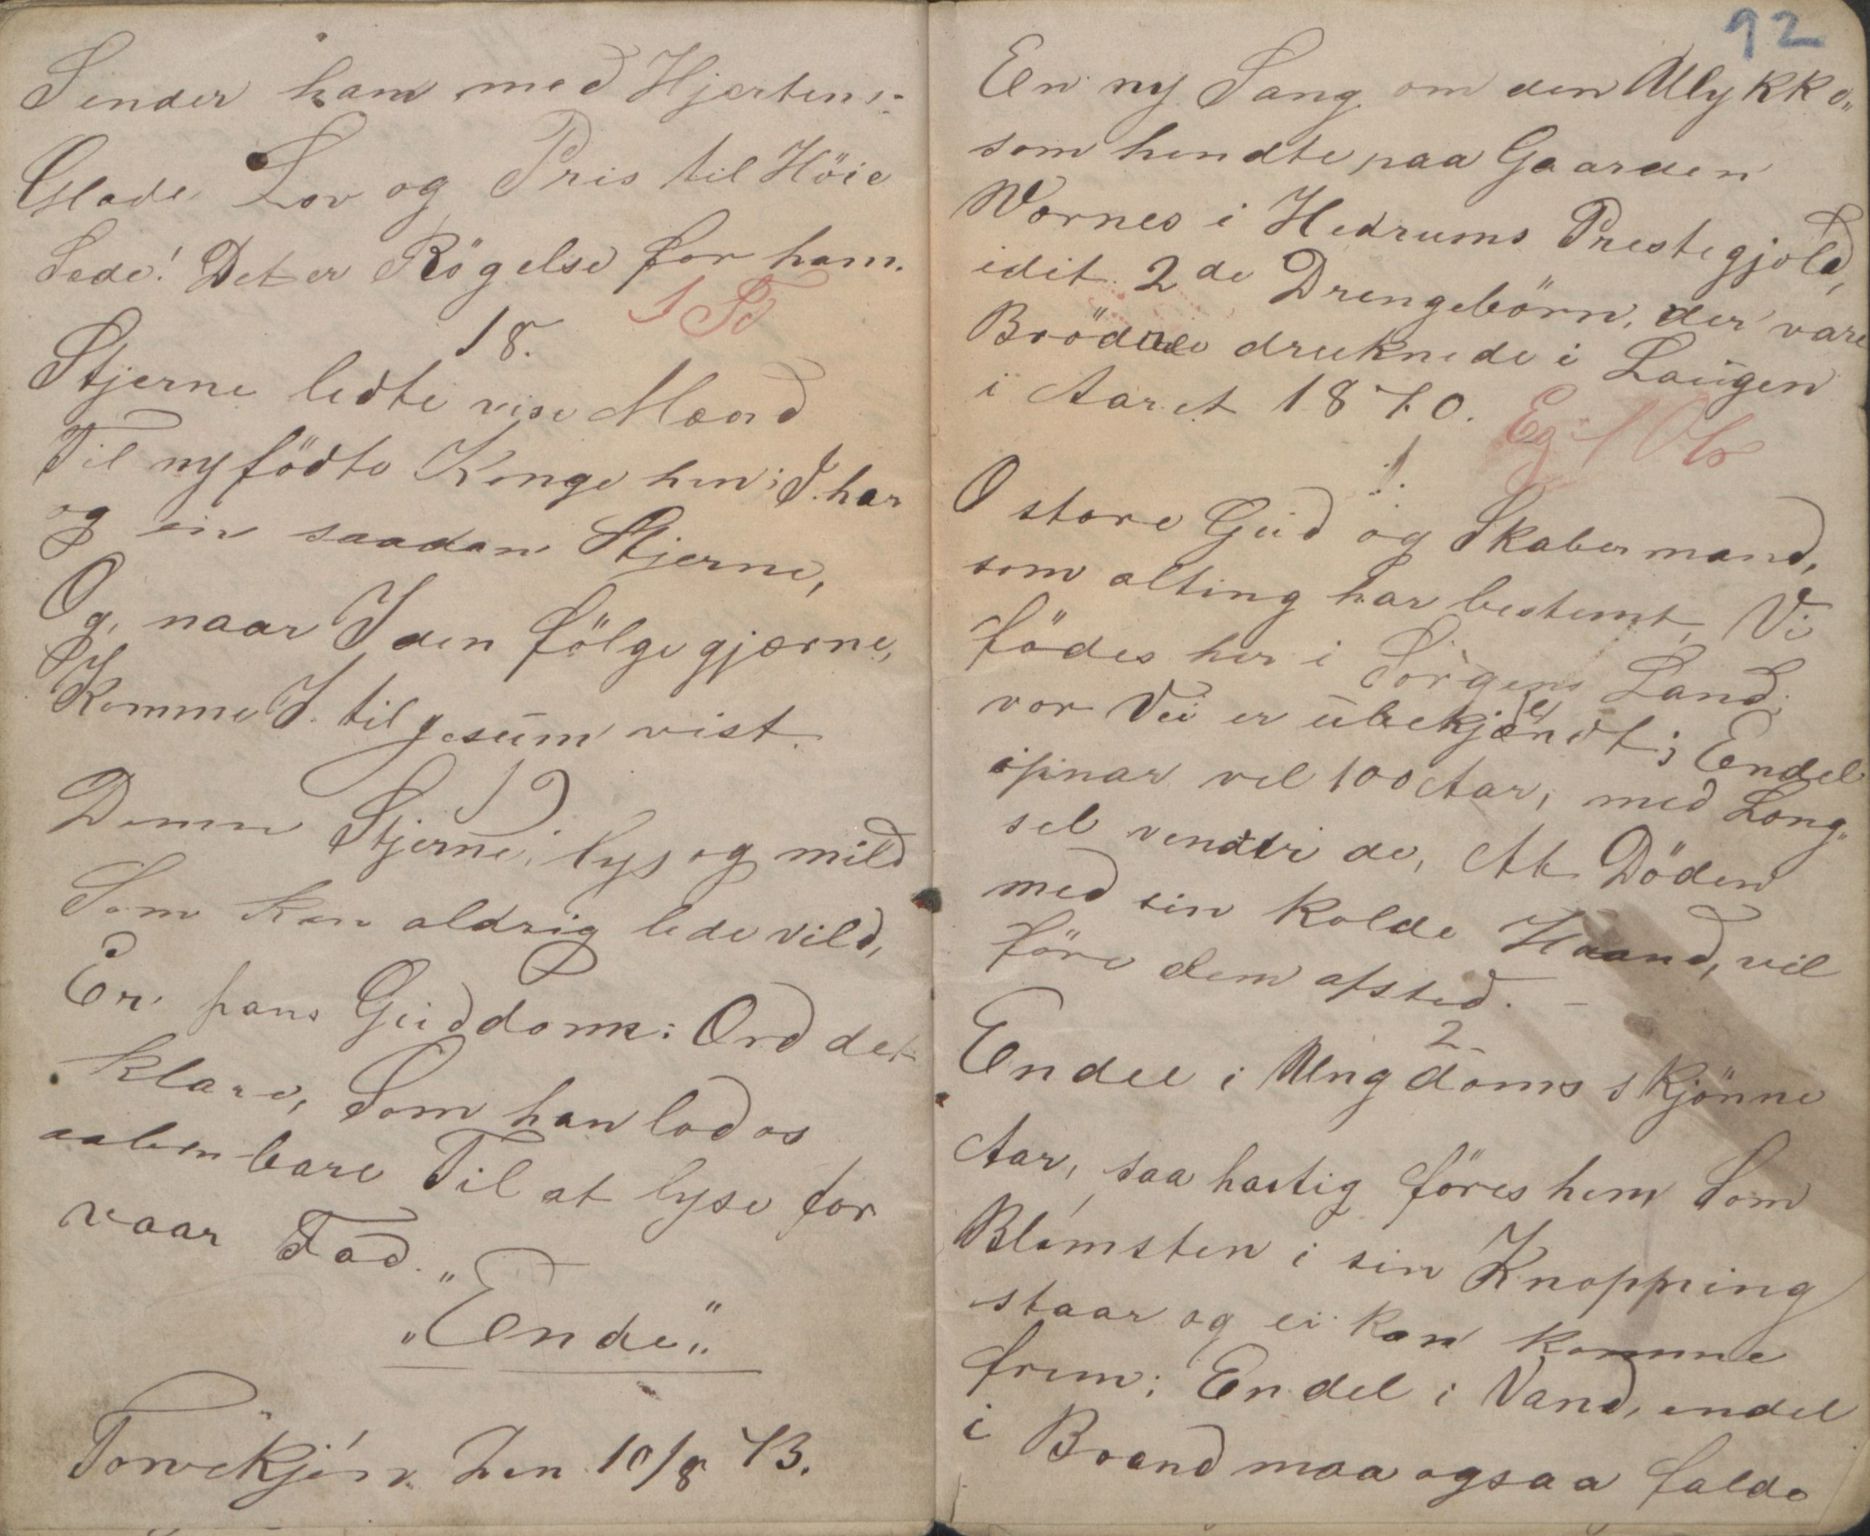 Sender ham med Hjertens-
Glade Lov og Pris til Höie
Sade! Det er Rögelse for ham.
18.
Stjerne ledte vise Mænd
Til nyfödte Konge hen; I. har
og en saadan Stjerne,
Og, naar I den fölge gjærne,
Komme I. til Jesum vist.
19
Denne Stjerne, lys og mild
Som kan aldrig lede vild,
Er hans Guddoms: Ord det
klare, Som han lod os
aabenbare Til at lyse for
vaar Fod.
„Ende„
Torvekjörn. Den 10/8 73.
92
En ny Sang om den Ulykke„
som hendte paa Gaarden
Wornes i Hedrums Prestegjeld,
idet 2de Drengebörn, der vare
Brödre druknede i Laugen
i Aaret 1870.
1.
O store Gud og Skabermand,
som alting har bestemt, Vi
födes her i Sorgens Land,
vor Vei er ubekjendt; Endel
opnar vel 100 Aar, med Læng„
sel venter de, At Döden
med sin kolde Haand, vil
före dem afsted. –
2
Endel i Ungdoms skjönne
Aar, saa hastig föres hem Som
Blomsten i sin Knopping
staar og ei kan komme
frem; Endel i Vand, endel
i Brand maa ogsaa falde